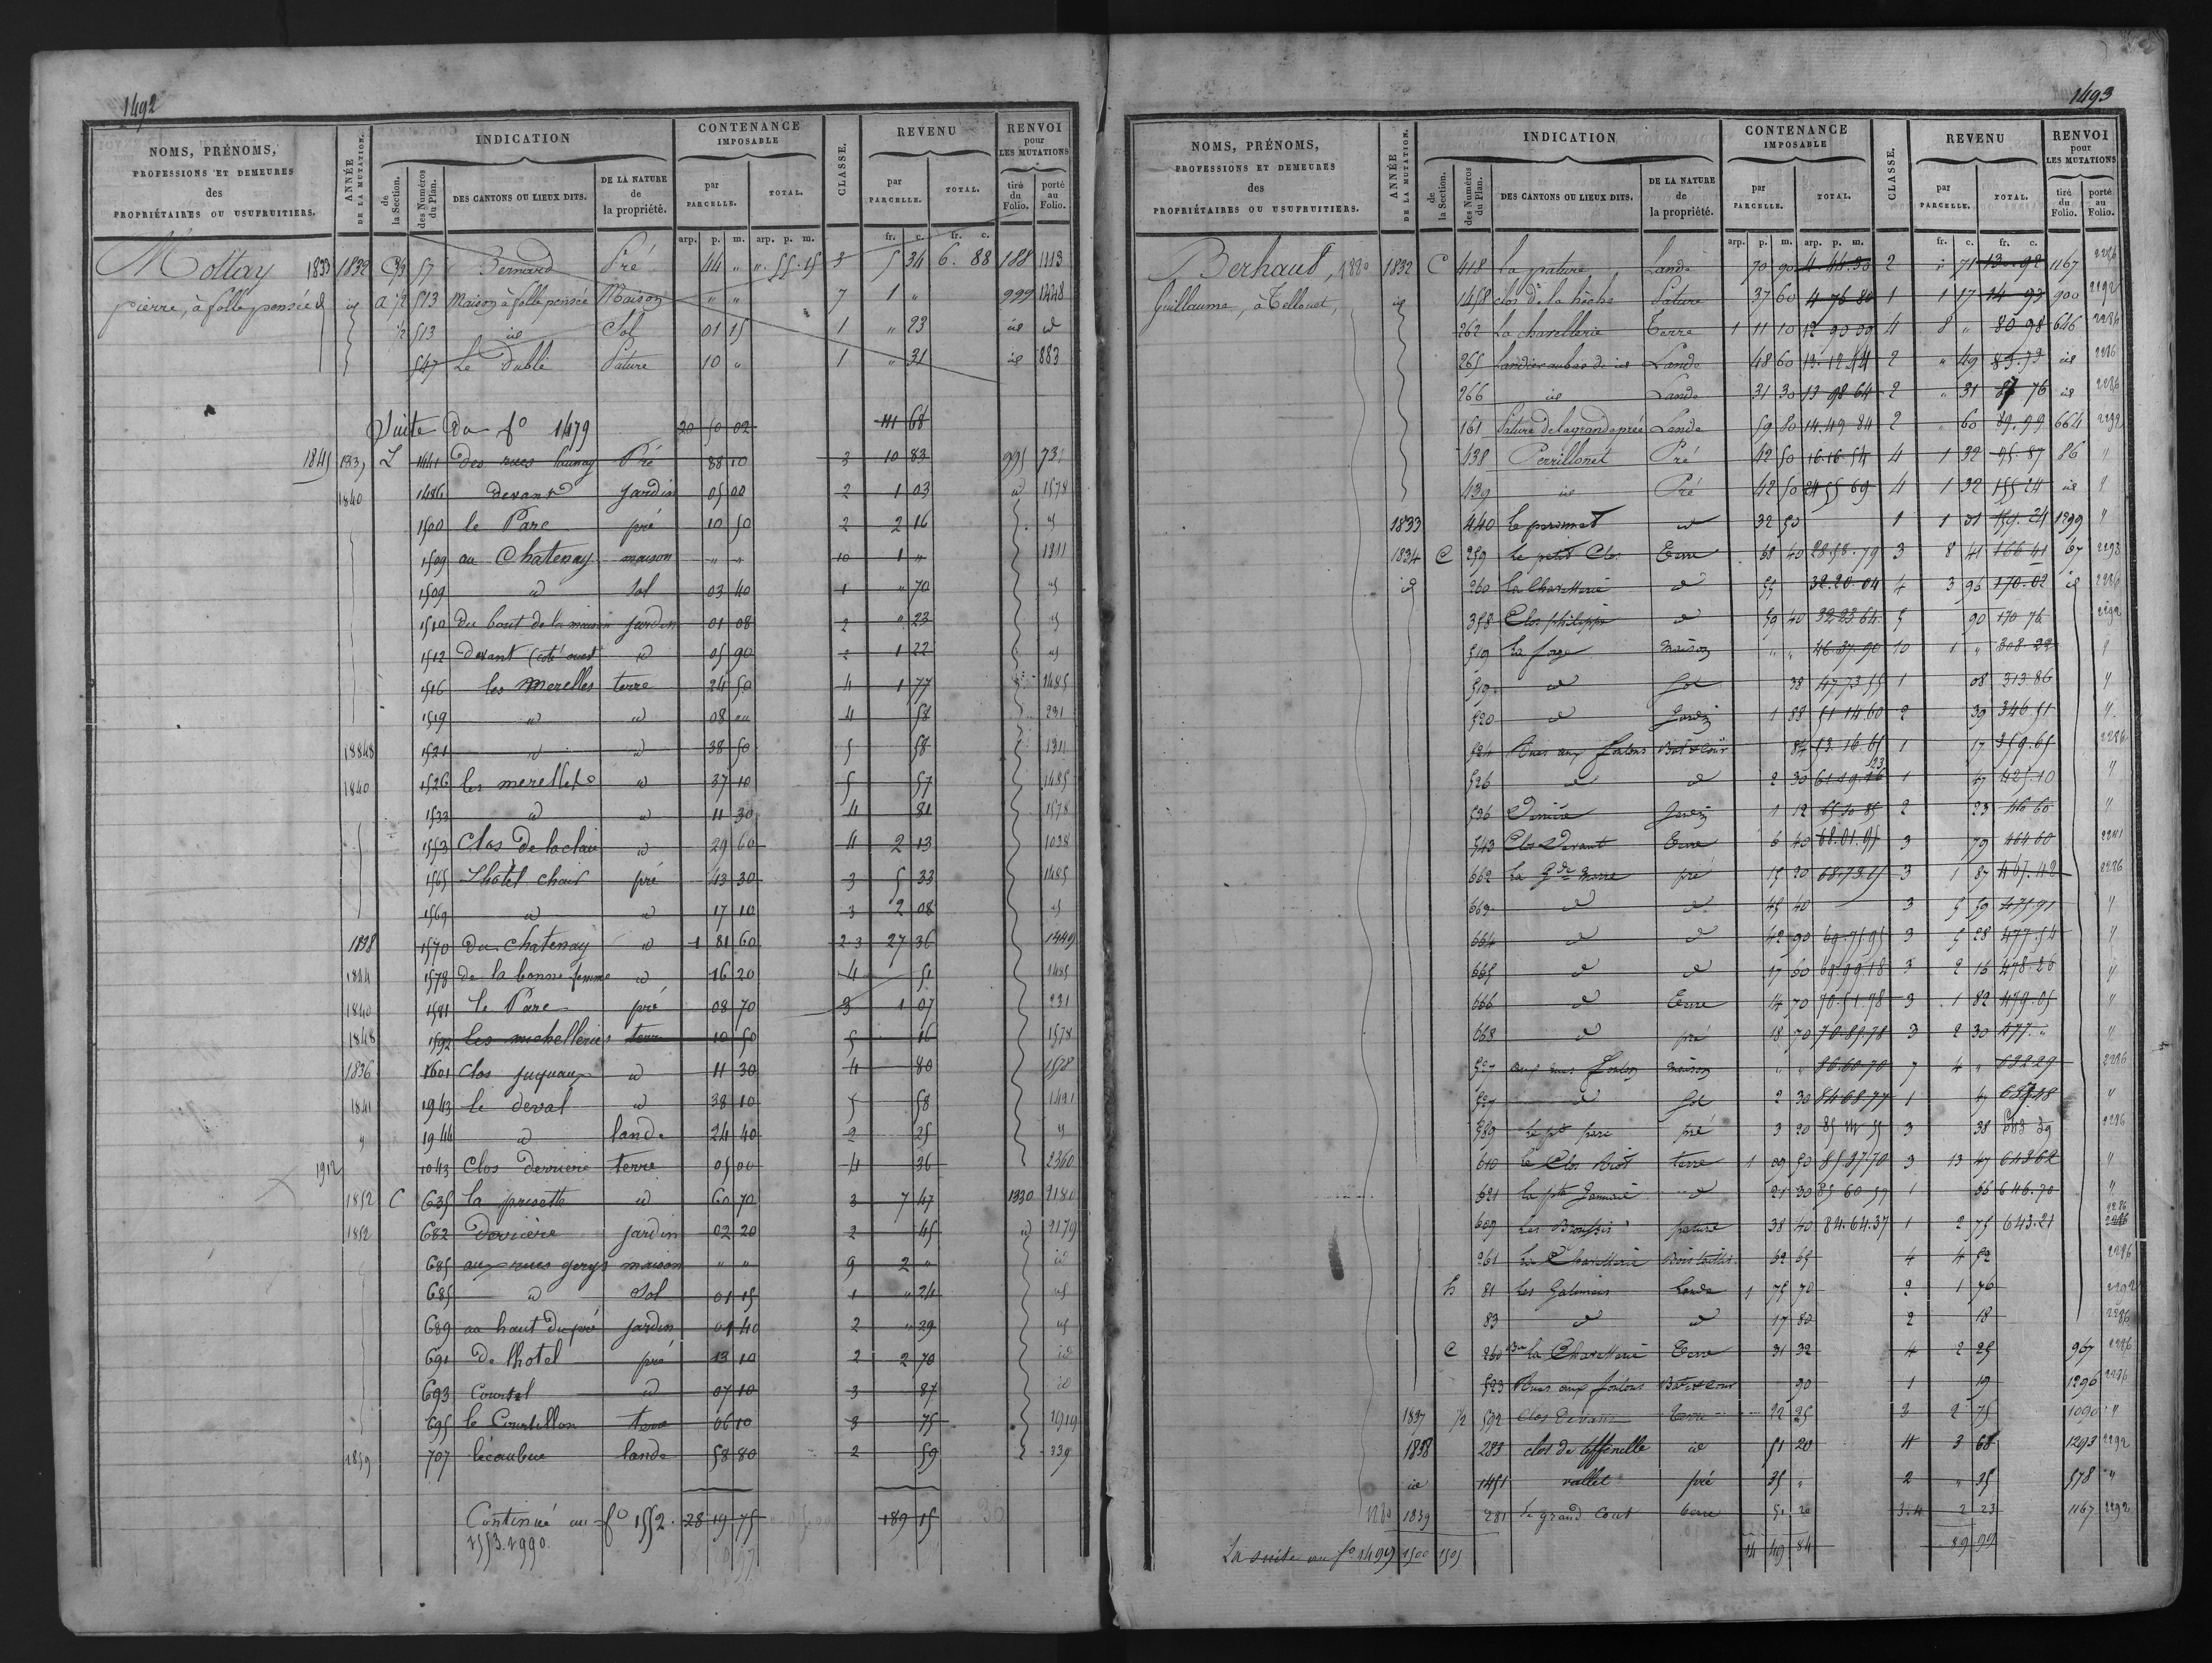 1492
NOMS, PRÉNOMS, PROFESSIONS ET DEMEURES des PROPRIÉTAIRES OU USUFRUITIERS.
ANNÉE DE LA MUTATION.
INDICATION
de la Section.
des Numéros du Plan.
DES CANTONS OU LIEUX DITS.
DE LA NATURE de la propriété.
CONTENANCE IMPOSABLE
par PARCELLE.
TOTAL.
CLASSE.
REVENU
par PARCELLE.
TOTAL.
RENVOI pour LES MUTATIONS
tiré du Folio.
porté au Folio.
arp. p. m. arp. p. m. fr. c. fr. c.
Mottay 1833 1832 57 Bernard Pré 44 " ". 55. 15 3 5 34 6. 88 188 1113
pierre, à folle pensée id a 1/2 513 Maison à folle pensée Maison " " 7 1 " 999 1448
1/2 513 id Sol 01 15 1 " 23 id id
547 Le Dublé Pature 10 " 1 " 31 id 883
Suite du fo 1479 20 50 02 111 68
1845 1839 L 1441 des rues launay Pré 88 10 3 10 83 995
1840 1486 devant Jardin 05 00 2 1 03 id 1578
1500 le Parc pré 10 50 2 2 16 id
1509 au Chatenay maison " " 10 1 " 1311
1509 id Sol 03 40 1 " 70 id
1510 du bout de la maison jardin 01 08 2 " 23 id
1512 devant (coté ouest id 05 90 2 1 22 id
1516 les Merelles terre 24 50 4 1 77 1485
1519 id id 08 " 4 58 231
1521 id id 38 50 5 58 1311
1840 1526 les merelles id 37 10 5 57 1485
1533 id id 11 30 4 81 1578
1553 Clos de la claie id 29 60 4 2 13 1038
1565 Lhotel chaid pré 43 30 3 5 33 1485
1569 id id 17 10 3 2 08 id
1838 1570 du Chatenay id 1 81 60 2-3 27 36 1449
1844 1578 de la bonne femme id 16 20 4 51 1485
1840 1581 le Parc pré 08 70 3 1 07 231
1848 1592 les michelleries terre 10 50 5 16 1578
1836 1601 Clos juguaux id 11 30 4 80 1528
1841 1943 le deval id 38 10 5 58 1491
1944 id lande 24 40 2 25
1912 1043 Clos derriere terre 05 00 4 36 2360
1852 C 635 la prisette id 60 70 3 7 47 1330 2180
1852 682 Derrière Jardin 02 20 2 45 id 2179
685 aux rues gerys maison " " 9 2 " id
685 id Sol 01 15 1 " 24 id
689 au haut du pré jardin 01 40 2 " 29 id
691 De lhotel pré 13 10 2 2 70 id
693 Courtel id 07 10 3 87 id
695 le Courtillon terre 06 10 3 75 1919
1859 707 lécaubue lande 58 80 2 59 339
Continué au fo 1552. 28 19 75 189 15
1553. 1990.
1493
NOMS, PRÉNOMS, PROFESSIONS ET DEMEURES des PROPRIÉTAIRES OU USUFRUITIERS.
ANNÉE DE LA MUTATION.
INDICATION
de la Section.
des Numéros du Plan.
DES CANTONS OU LIEUX DITS.
DE LA NATURE de la propriété.
CONTENANCE IMPOSABLE
par PARCELLE.
TOTAL.
CLASSE.
REVENU
par PARCELLE.
TOTAL.
RENVOI pour LES MUTATIONS
tiré du Folio.
porté au Folio.
arp. p. m. arp. p. m. fr. c. fr. c.
Berhaut, 1880 1832 C 418 La pature Lande 70 90 4 44 30 2 " 71 13. 92 1167 2286
Guillaume, à Tellouet, id 1458 clos de la hèche Pature 37 60 4 76 80 1 1 17 14 93 900 2292
262 La charellerie Terre 1 11 10 12 90 09 4 8 " 80 98 646 2286
265 Landier au bas de id Lande 48 60 13. 12 44 2 " 49 85.73 id 2286
266 id Lande 31 30 13 98 64 2 " 31 87 76 id 2286
161 Pature de la grande prée Lande 59 80 14. 49 84 2 " 60 89. 99 664 2292
438 Perrillonet Pré 42 50 16. 16 54 4 1 32 95. 87 86 "
439 id Pré 42 50 24 55 69 4 1 32 155 24 id
1833 440 id 32 50 1 1 01 159. 24 1299 "
1834 C 259 Le petit Clos Terre 68 40 28.58.79 3 8 41 166 41 67 2293
id 260 La Charetterie id 55 32. 20. 04 4 3 96 170. 02 id 2286
358 Clos philippe id 59 40 32 23 64. 5 90 170 76 2292
519 La forge Maison " " 46 37 90 10 1 " 308. 22
519 id Sol 38 47 73 55 1 08 313 86
520 id Jardin 1 88 51 14 60 2 39 346. 51
524 Rues aux foulons Bat et Cour 84 53. 16. 65 1 17 359. 65 2286
526 id id 2 30 1 47 425.10
536 Derrière Jardin 1 12 65 30 85 2 23 46 60
543 Clos Devant Terre 6 40 68. 01. 95 3 79 464 60 2241
662 La Gde Marre pré 15 20 68. 73. 3 1 87 467. 42 2286
663 id id 45 40 3 5 59 475. 91
664 id id 42 90 69. 75. 95 3 5 28 477. 54
665 id id 17 60 69. 99 18 3 2 16 478. 26
666 id Terre 14 70 70. 51. 78 3 1 82 479. 05
668 id pré 18 70 70. 89. 78 3 2 30 477. "
527 aux rues foulon Maison " " 86. 60 70 7 4 " 632.29 2286
527 id Sol 2 30 84 68. 77 1 47 637 48
589 Le pt parc pré 3 20 3 38 2286
610 Le Clos terre 1 09 50 85 37 70 3 13 47 643 62
621 la pte id 21 30 85 60 57 1 66 646. 70
609 pature 38 40 84. 64. 37 1 2 75 643. 21 2286
261 La Charetterie Bois taillis 62 65 4 4 52 2286
h 81 Les Galmais Lande 1 75 70 2 1 76 2292
83 id id 17 80 2 18 2286
C 260 bis La Charetterie Terre 31 32 4 2 25 967 2286
523 Rues aux foulons Bat et Cour 90 1 19 1296 2286
1837 1/2 592 Clos devant Terre 22 25 3 2 75 1090 "
1838 283 clos de id 51 20 4 3 68 1293 2292
id 1451 vallet pré 35 " 2 " 35 578 "
1880 1839 281 Le grand Cout terre 51 20 3:4 2 23 1167 2292
14 49 84 89 99
La suite au fo 1499 1500 1505